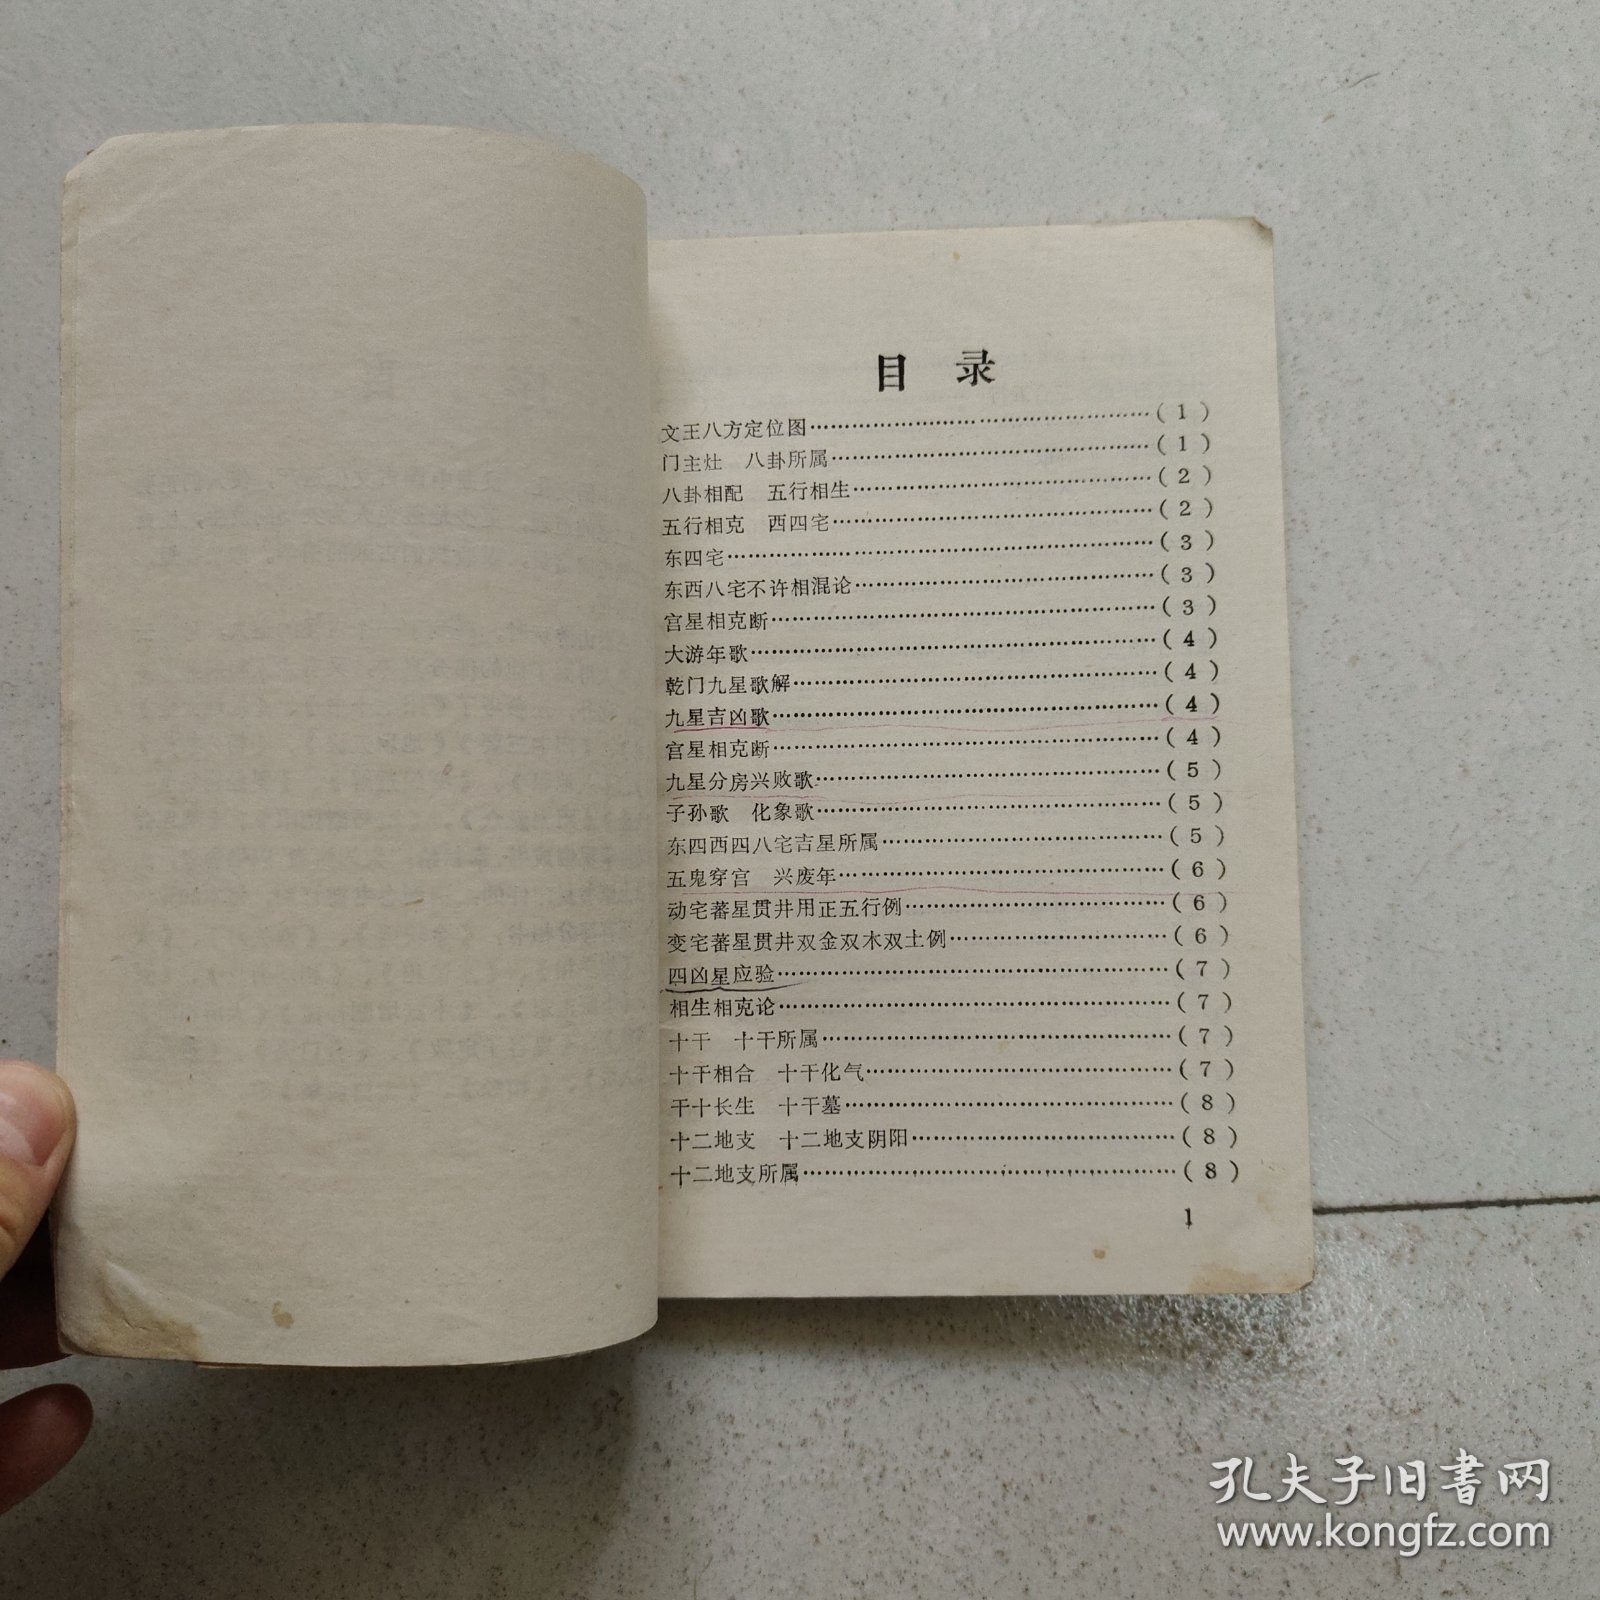 目 录
文王八方定位图……………………………………………(1)
门主灶 八卦所属……………………………………………(1)
八卦相配 五行相生……………………………………………(2)
五行相克 西四宅……………………………………………(2)
东四宅……………………………………………(3)
东西八宅不许相混论……………………………………………(3)
宫星相克断……………………………………………(3)
大游年歌……………………………………………(4)
乾门九星歌解……………………………………………(4)
九星吉凶歌……………………………………………(4)
宫星相克断……………………………………………(4)
九星分房兴败歌……………………………………………(5)
子孙歌 化象歌……………………………………………(5)
东四西四八宅吉星所属……………………………………………(5)
五鬼穿宫 兴废年……………………………………………(6)
动宅蕃星贯井用正五行例……………………………………………(6)
变宅蕃星贯井双金双木双土例……………………………………………(6)
四凶星应验……………………………………………(7)
相生相克论……………………………………………(7)
十干 十干所属……………………………………………(7)
十干相合 十干化气……………………………………………(7)
干十长生 十干墓……………………………………………(8)
十二地支 十二地支阴阳……………………………………………(8)
十二地支所属……………………………………………(8)
1
孔夫子旧書网
www.kongfz.com